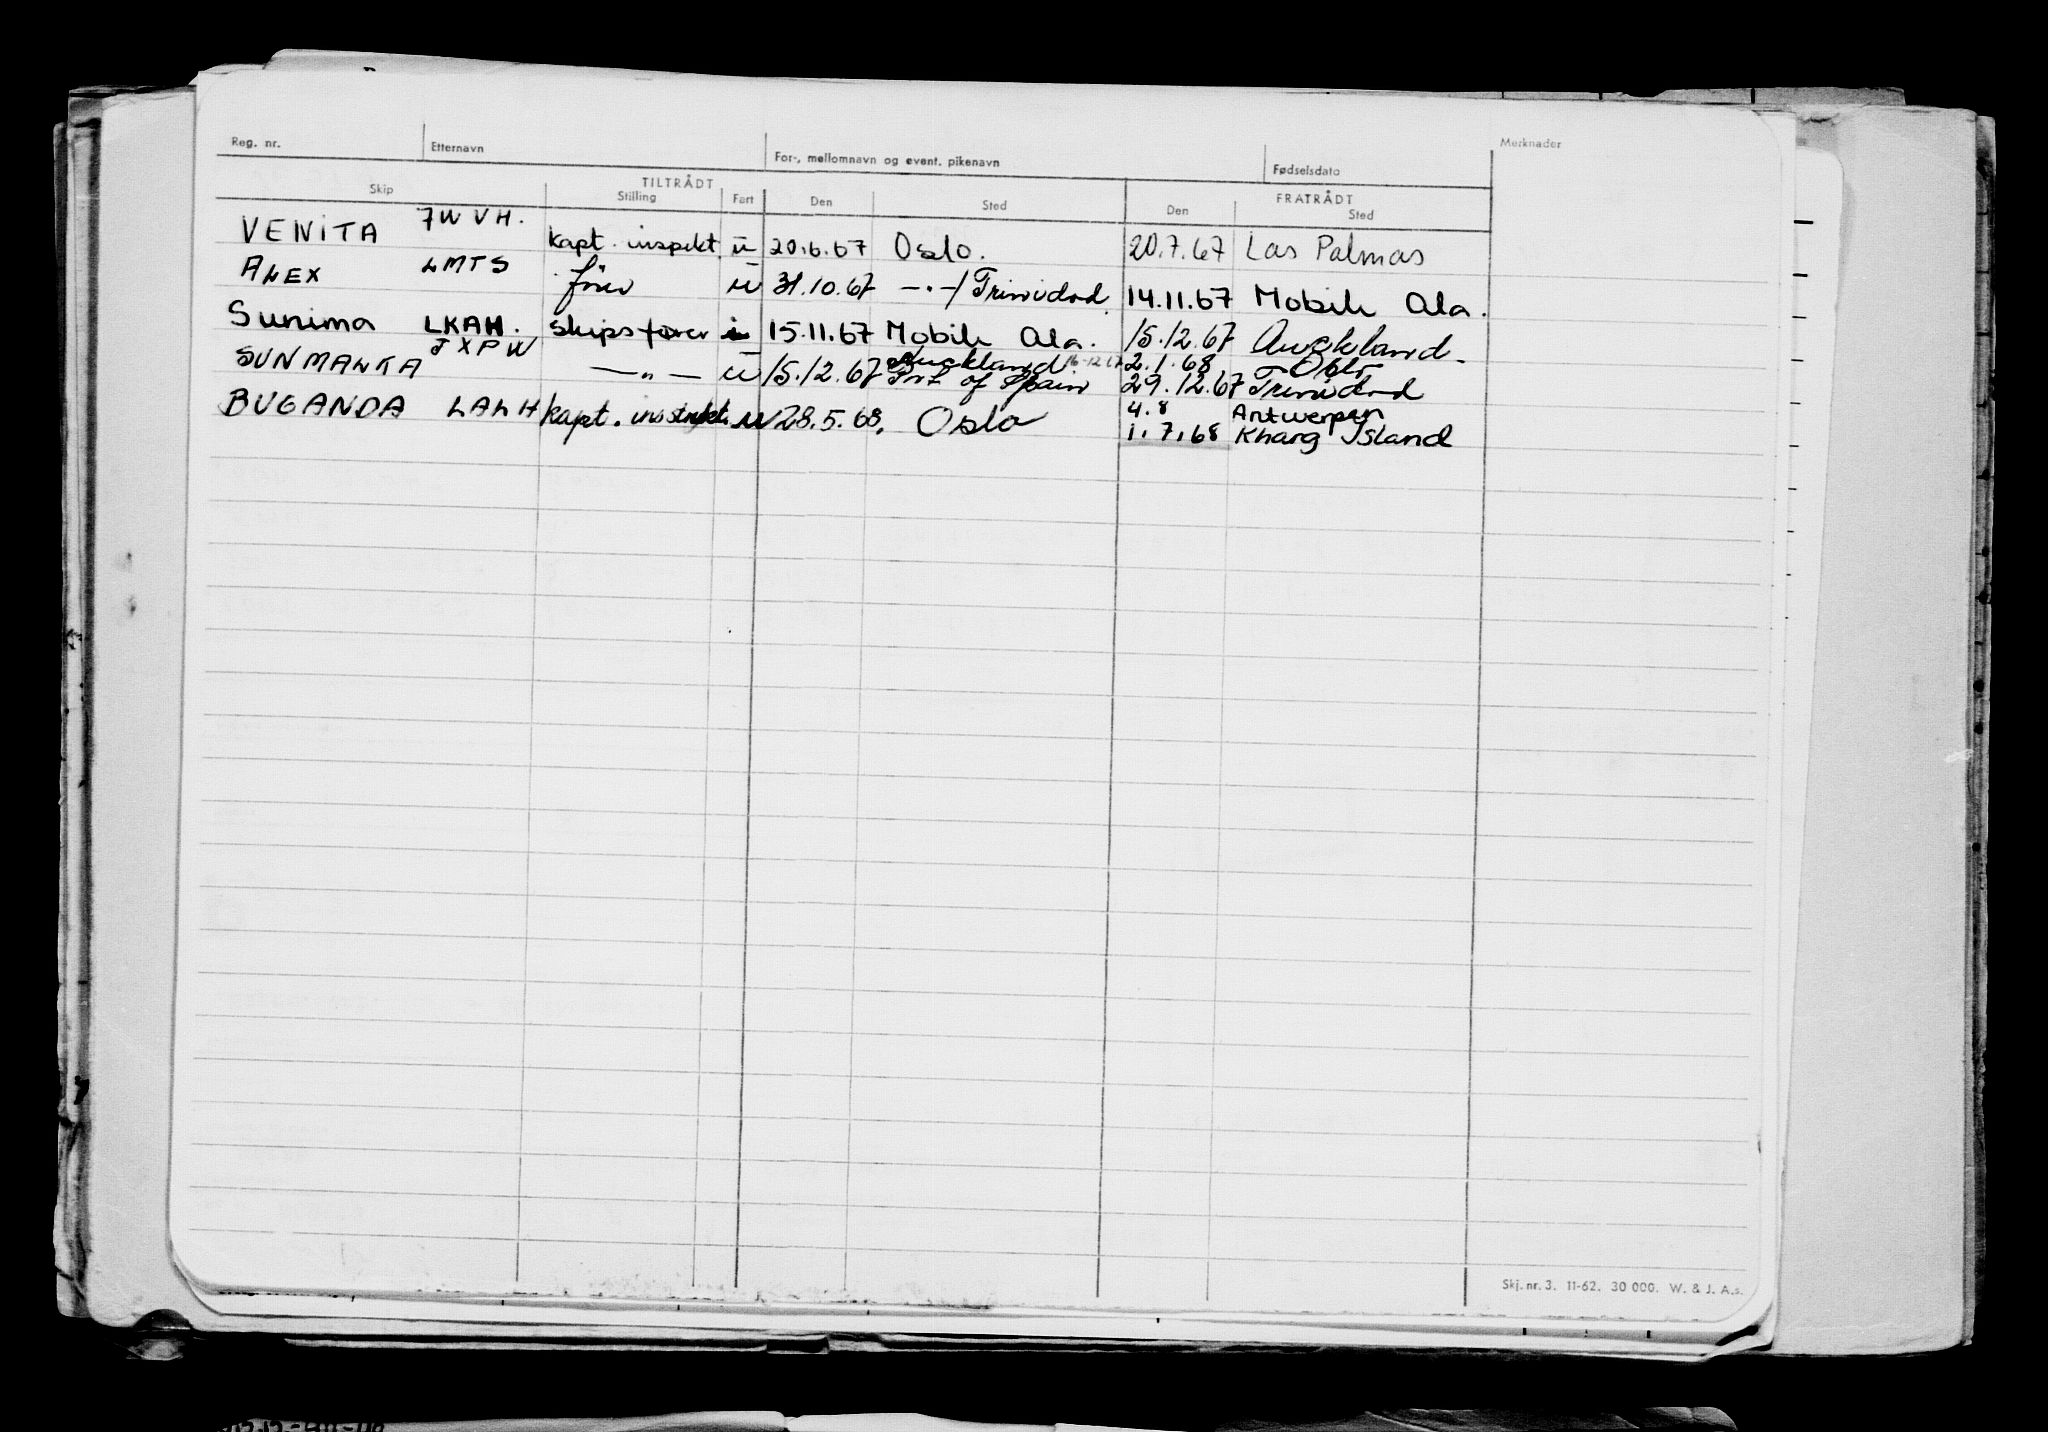 Reg. nr. Etternavn For-, mellomnavn og event. pikenavn Fødselsdato Merknader
TILTRÅDT FRATRÅDT
Skip Stilling Fart Den Sted Den Sted
VENITA 7WVH. Kapt. inspekt. u 20.6.67 Oslo. 20.7.67 Las Palmas
ALEX LMTS fører u 31.10.67 —"—/Trinidad 14.11.67 Mobile Ala.
Sunima LKAH. Skipsfører u 15.11.67 Mobile Ala. 15.12.67 Auckland.
SUNMALKA JXPW —"— u 15.12.67 Auckland. 16-12 67 2.1.68 Oslo
Prt of Spain 29.12.67 Trinidad
4.8 Antwerpen
BUGANDA LALH Kapt. instrukt. u 28.5.68. Oslo 1.7.68 Kharg Island
Skj. nr. 3. 11-62. 30 000. W. & J. A.s.